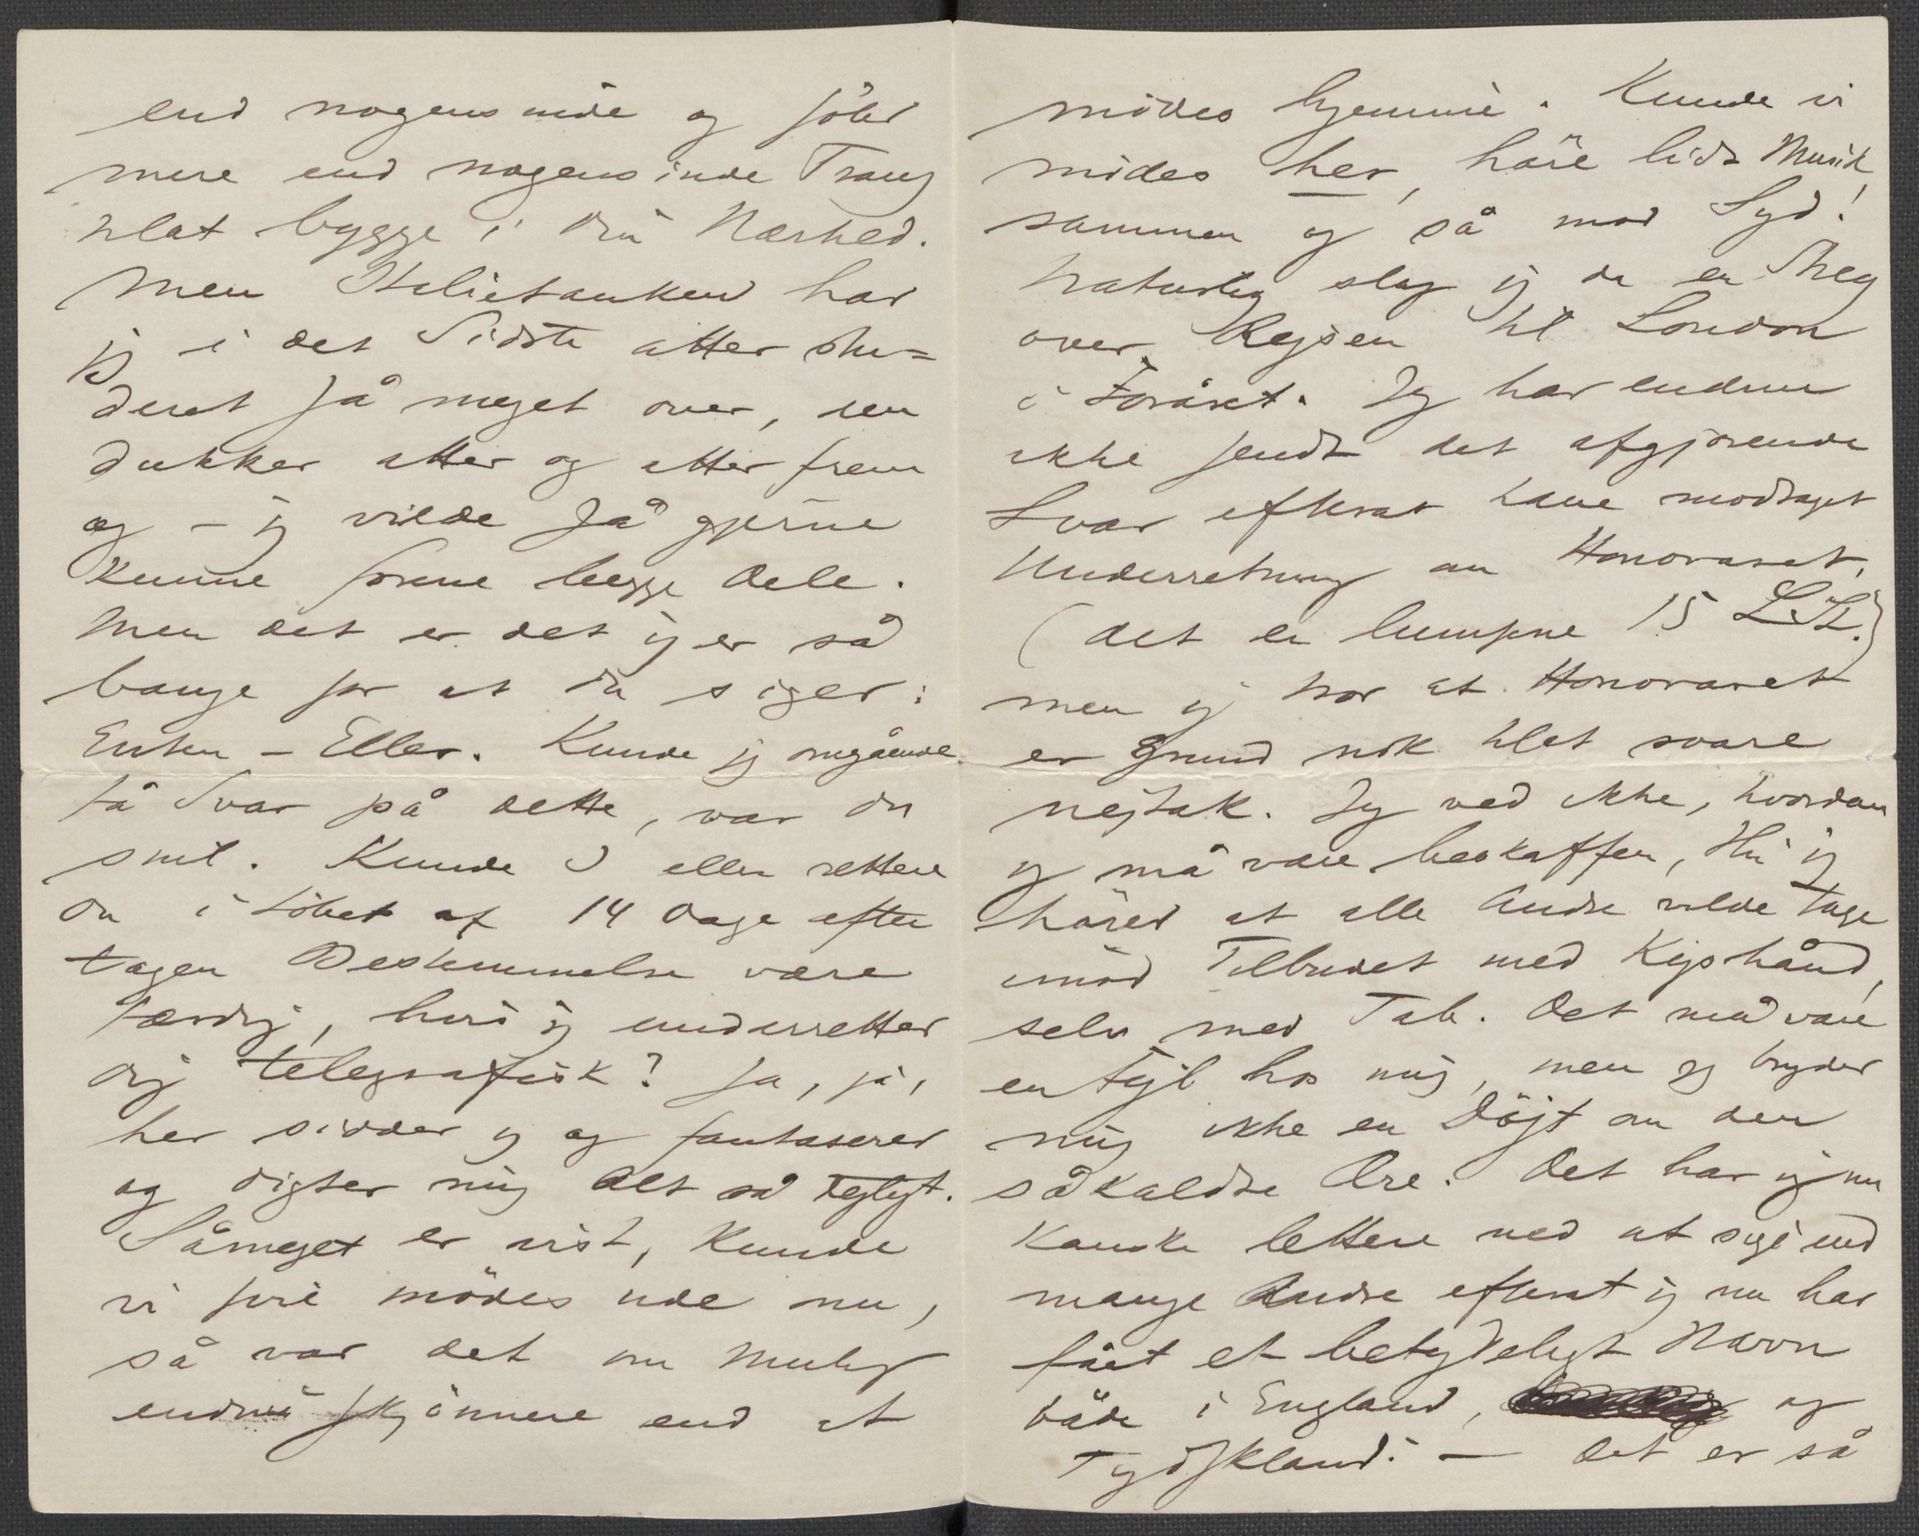 end nogensinde og føler
mere end nogensinde Trang
til at bygge i din Nærhed.
Men Italietanken har
jeg i det Sidste atter stu=
deret så meget over, den
dukker atter og atter frem
og – jeg vilde så gjerne
kunne forene begge Dele.
Men det er det jeg er så
bange for at du siger:
Enten – Eller. Kunde jeg omgående
få Svar på dette, var du
snil. Kunde I eller rettere
du i Löbet af 14 Dage efter
tagen Bestemmelse være
færdig, hvis jeg underretter
dig telegrafisk? Ja, ja,
her sidder jeg og fantaserer
og digter mig Alt så dejligt.
Såmeget er vist, kunde
vi fire mödes ude nu,
så var det om muligt
endnu skjönnere end at
mödes hjemme. Kunde vi
mödes her, höre lidt Musik
sammen og så mod Syd!
Naturlig slog jeg da en Streg
over Rejsen til London
i Foråret. Jeg har endnu
ikke sendt det afgjörende
Svar efterat have modtaget
Underretning om Honoraret,
(det er lumpne 15 L.St.)
men jeg tror at Honoraret
er Grund nok til at svare
nejtak. Jeg ved ikke, hvordan
jeg må være beskaffen, thi jeg
hörer at alle Andre vilde tage
imod Tilbudet med Kyshånd,
selv med Tab. Det må være
en Fejl hos mig, men jeg bryder
mig ikke en Döjt om den
såkaldte Ære. Det har jeg nu
kanske lettere ved at sige end
mange Andre efterat jeg nu har
fået et betydeligt Navn
både i England, og
Tydskland. – Det er så